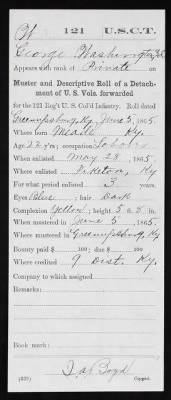 W 121 U.S.C.T.
George Washington
Appears with rank of Private on
Muster and Descriptive Roll of a Detach-
ment of U. S. Vols. forwarded
for the 121 Reg't U. S. Col'd Infantry. Roll dated
Greenupsburg, Ky, June 5, 1865.
Where born Meade Ky.
Age 22 y'rs; occupation Laborer
When enlisted May 28, 1865.
Where enlisted Ky.
For what period enlisted 3 years.
Eyes Blue; hair Dark
Complexion Yellow; height 5 ft. 8 in.
When mustered in June 5, 1865.
Where mustered in Greenupsburg, Ky
Bounty paid $ 100; due $ 100
Where credited 9 Dist. Ky.
Company to which assigned
Remarks:
Book mark:
Boyd
(339) Copyist.